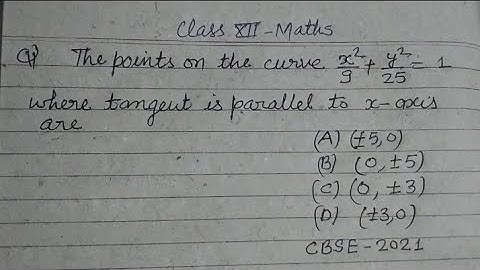 Class XII - Maths
Q) The points on the curve x²/9 + y²/25 = 1
where tangent is parallel to x-axis
are
(A) (±5,0)
(B) (0, ±5)
(C) (0, ±3)
(D) (±3,0)
CBSE - 2021